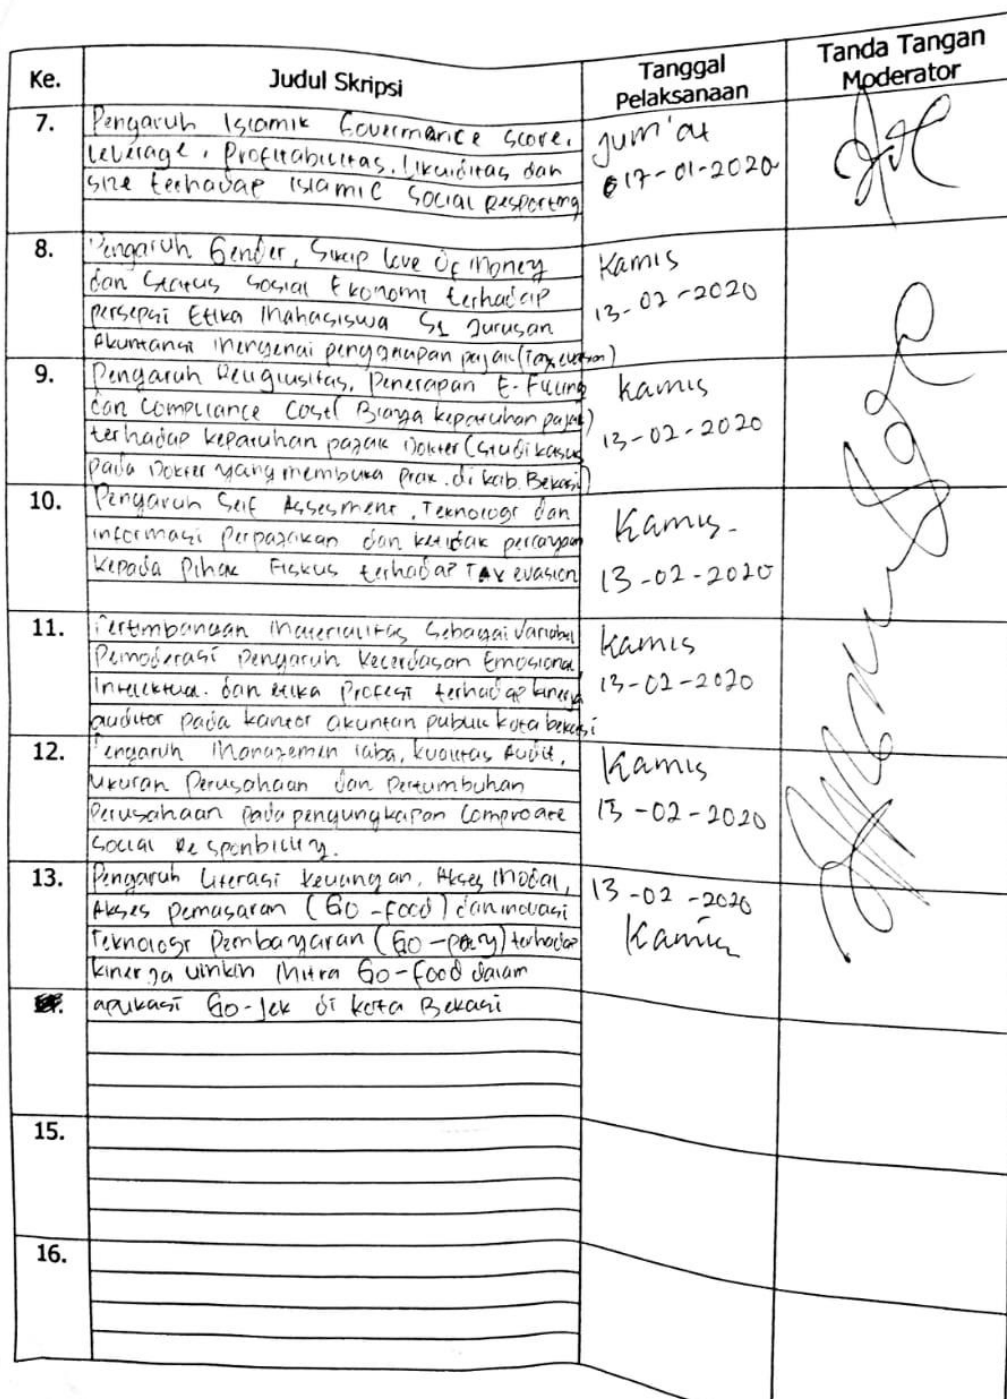 Ke.
Judul Skripsi
Tanggal
Pelaksanaan
Tanda Tangan
Moderator
7.
Pengaruh Islamik Govermance Score,
Leverage, Profitabilitas, Likuiditas dan
size terhadap Islamic Social Resporting
Jum'at
17-01-2020
8.
Pengaruh Gender, Sikap love of money
dan Status Sosial Ekonomi terhadap
persepsi Etika Mahasiswa S1 Jurusan
Akuntansi Mengenai penggelapan pajak (Tax evasion)
Kamis
13-02-2020
9.
Pengaruh Religiusitas, Penerapan E-Filling
dan Compliance Cost (Biaya kepatuhan pajak)
terhadap kepatuhan pajak Dokter (Studi kasus
pada Dokter yang membuka Prak. di kab. Bekasi)
Kamis
13-02-2020
10.
Pengaruh Self Assesment, Teknologi dan
informasi Perpajakan dan ketidak percayaan
kepada Pihak Fiskus terhadap Tax evasion
Kamis-
13-02-2020
11.
Pertimbangan Materialitas Sebagai Variabel
Pemoderasi Pengaruh Kecerdasan Emosional
Intelektual. dan etika Profesi terhadap kinerja
auditor pada kantor akuntan publik kota bekasi
Kamis
13-02-2020
12.
Pengaruh Manajemen laba, kualitas Audit,
ukuran Perusahaan dan Pertumbuhan
Perusahaan pada pengungkapan Comproate
Social Responbility.
Kamis
13-02-2020
13.
Pengaruh Literasi keuangan, Akses Modal,
Akses pemasaran (Go-food) dan inovasi
Teknologi Pembayaran (Go-pay) terhadap
kinerja umkm Mitra Go-Food dalam
aplikasi Go-Jek di kota Bekasi
13-02-2020
Kamis
15.
16.